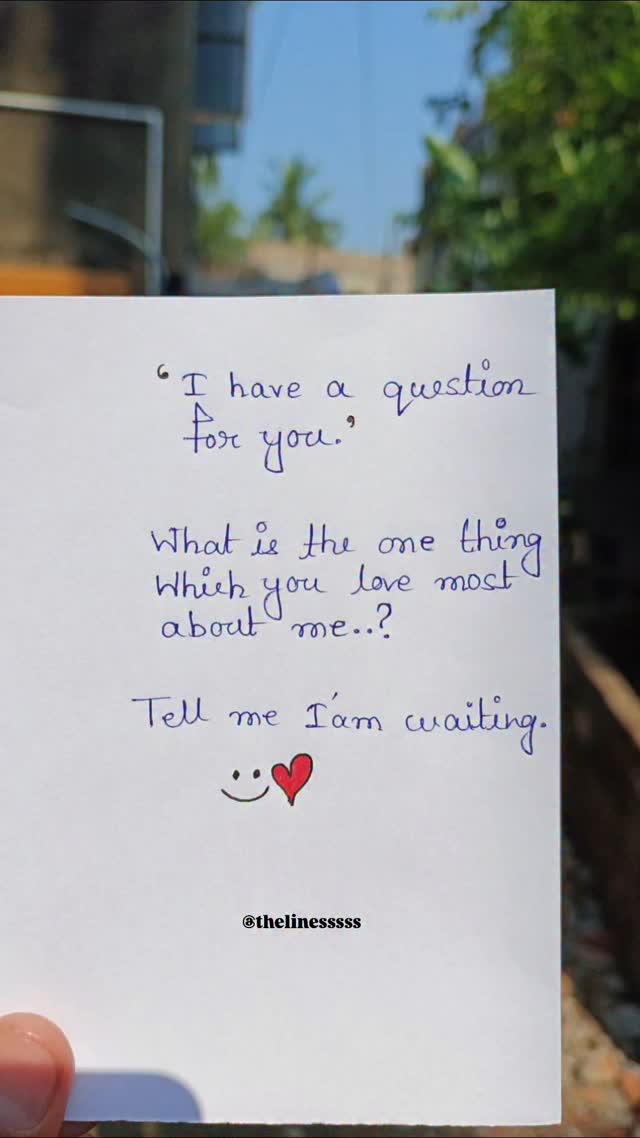 ‘I have a question
for you.’
What is the one thing
Which you love most
about me..?
Tell me I'am waiting.
@thelinesssss